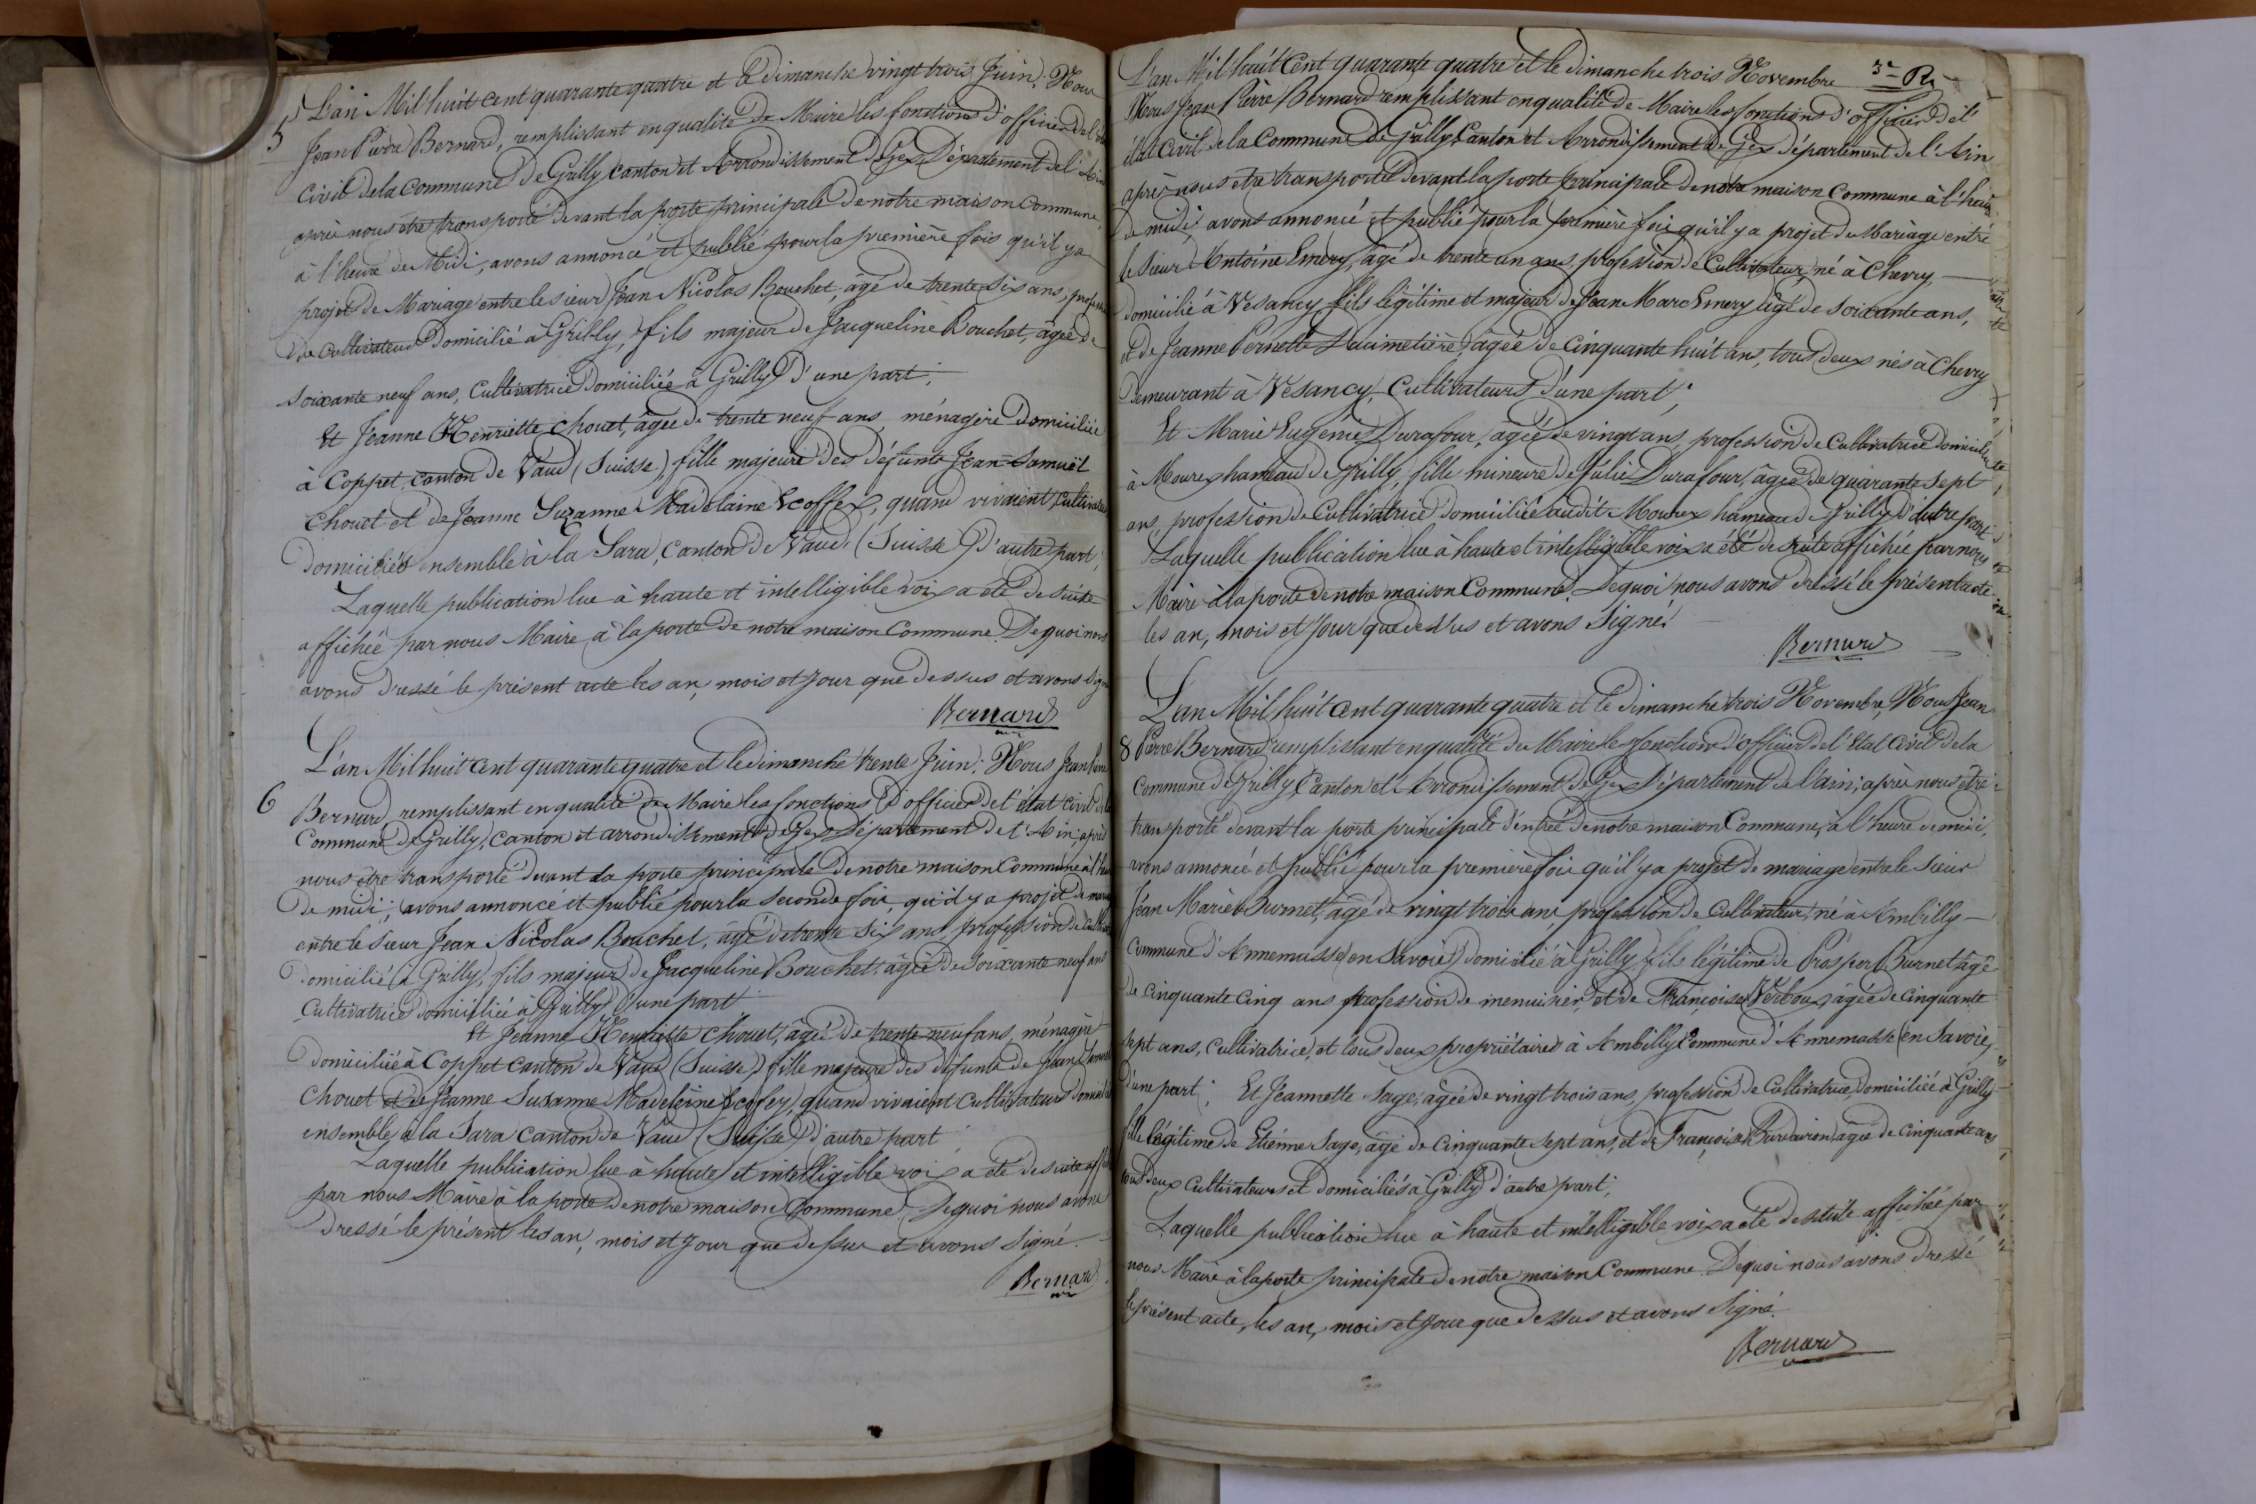 5
L'an Mil huit cent quarante quatre et le dimanche vingt trois Juin. Nous
Jean Pierre Bernard, remplissant en qualité de Maire les fonctions d'officier de l'
Civil de la Commune de Grilly canton et Arrondissement de Gex Département de l'Ain
après nous être transporté devant la porte principale de notre maison Commune,
à l'heure de Midi, avons annoncé et publié pour la première fois qu'il y a
projet de Mariage entre le sieur Jean Nicolas Bouchet, âgé de trente six ans,
de cultivateur domicilié à Grilly, fils majeur de Jacqueline Bouchet, âgée de
soixante neuf ans, cultivatrice domiciliée à Grilly d'une part;
Et Jeanne Henriette Chouet, âgée de trente neuf ans, ménagère domiciliée
à Coppet canton de Vaud (Suisse), fille majeure des défunts Jean Samuël
Chouet et de Jeanne Suzanne Madelaine Ecoffex, quand vivaient cultivateurs
domiciliés ensemble à la Sara, Canton de Vaud, (Suisse) d'autre part;
Laquelle publication lue à haute et intelligible voix a été de suite
affichée par nous Maire à la porte de notre maison Commune. De quoi nous
avons dressé le présent acte les an, mois et jour que dessus et avons signé
Bernard
L'an Mil huit cent quarante quatre et le dimanche trente Juin. Nous Jean Pierre
6
Bernard remplissant en qualité de Maire les fonctions d'officier de l'état civil de la
Commune de Grilly, canton et arrondissement de Gex Département de l'Ain, après
nous être transporté devant la porte principale de notre maison Commune à l'heure
de midi; avons annoncé et publié pour la seconde fois, qu'il y a projet de
entre le sieur Jean Nicolas Bouchet, âgé de trente six ans, profession de
domicilié à Grilly, fils majeur de Jacqueline Bouchet, âgée de soixante neuf ans
Cultivatrice domiciliée à Grilly d'une part
Et Jeanne Henriette Chouet, âgée de trente neuf ans, ménagère
domiciliée à Coppet canton de Vaud (Suisse) fille majeure des défunts de Jean Samuel
Chouet et de Jeanne Susanne Madeleine Ecofey, quand vivaient Cultivateurs
ensemble à la Sara canton de Vaud (Suisse) d'autre part;
Laquelle publication lue à haute et intelligible voix a été de suite
par nous Maire à la porte de notre maison Commune, De quoi nous avons
dressé le présent les an, mois et jour que dessus et avons signé.
Bernard
L'an Mil huit Cent quarante quatre et le dimanche trois Novembre
3e R
Nous Jean Pierre Bernard remplissant en qualité de Maire les fonctions d'officier de l'
état civil de la Commune de Grilly, Canton et Arrondissement de Gex département de l'Ain
après nous être transporté devant la porte principale de notre maison Commune à l'heure
de midi, avons annoncé et publié pour la première fois qu'il y a projet de Mariage entre
le sieur Antoine Emery, âgé de trente un ans, profession de Cultivateur, né à Chevry,
domicilié à Vesancy, fils légitime et majeur de Jean Marc Emery âgé de soixante ans,
et de Jeanne Pernette Ducimetière, âgée de cinquante huit ans, tous deux nés à Chevry
demeurant à Vesancy, Cultivateurs d'une part;
Et Marie Eugénie Durafour, âgée de vingt ans, profession de Cultivatrice domiciliée
à Mourex hameau de Grilly, fille mineure de Julie Durafour, âgée de quarante sept
ans, profession de Cultivatrice domiciliée audit Mourex hameau de Grilly d'autre part;
Laquelle publication lue à haute et intelligible voix a été de suite affichée par nous
Maire à la porte de notre maison Commune. De quoi nous avons dressé le présent acte
les an, mois et jour que dessus et avons signé.
Bernard
L'an Mil huit cent quarante quatre et le dimanche trois Novembre, Nous Jean
8
Pierre Bernard remplissant en qualité de Maire les fonctions d'officier de l'état civil de la
Commune de Grilly, Canton et Arrondissement de Gex Département de l'ain; après nous être
transporté devant la porte principale d'entrée de notre maison Commune, à l'heure de midi,
avons annoncé et publié pour la première fois qu'il y a projet de mariage entre le Sieur
Jean Marie Burnet, âgé de vingt trois ans, profession de Cultivateur né à Ambilly
Commune d'Annemasse (en Savoie) domicilié à Grilly fils légitime de Prosper Burnet âgé
de cinquante cinq ans profession de menuisier, et de Françoise Verboux âgée de cinquante
sept ans, cultivatrice, et tous deux propriétaires à Ambilly Commune d'Annemasse (en Savoie)
d'une part; Et Jeannette Sage, âgée de vingt trois ans, profession de Cultivatrice, domiciliée à Grilly
fille légitime de Etiénne Sage, âgé de cinquante sept ans, et de Françoise âgée de cinquante ans
tous deux Cultivateurs et domiciliés à Grilly d'autre part;
Laquelle publication lue à haute et intelligible voix a été de suite affichée par
nous Maire à la porte principale de notre maison Commune. De quoi nous avons dressé
le présent acte, les an, mois et jour que dessus et avons signé.
Bernard